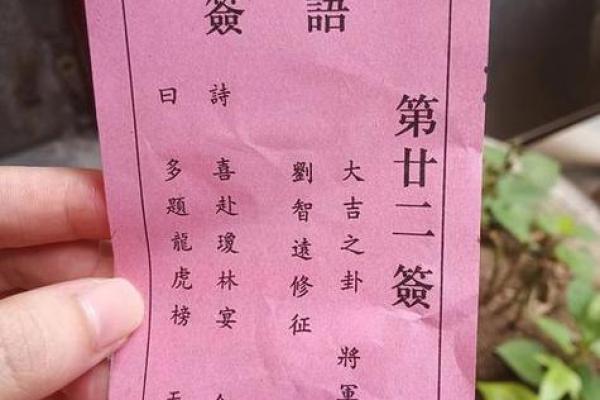 簽語
第廿二簽
大吉之卦 將軍
劉智遠修征
詩曰
喜赴瓊林宴
多題龍虎榜